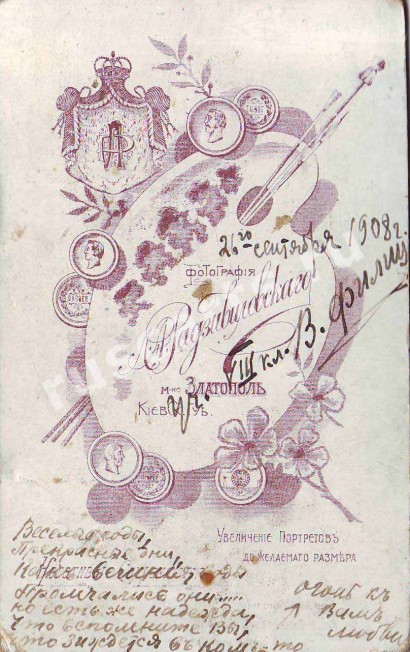 26го сентября 1908 г.
ФОТОГРАФІЯ
А.А. Радзавиловскаго
уч. VIII кл. В. Филиц
М-КО ЗЛАТОПОЛЬ
КІЕВ. ГУБ.
УВЕЛИЧЕНІЕ ПОРТРЕТОВЪ
ДО ЖЕЛАЕМАГО РАЗМѢРА
Веселые годы,
Прекрасные дни,
вешнія, воды
Промчались они....
но есть же надежда,
что вспомните Вы,
что зиждется въ комъ-то
огонь къ
Вамъ
любви